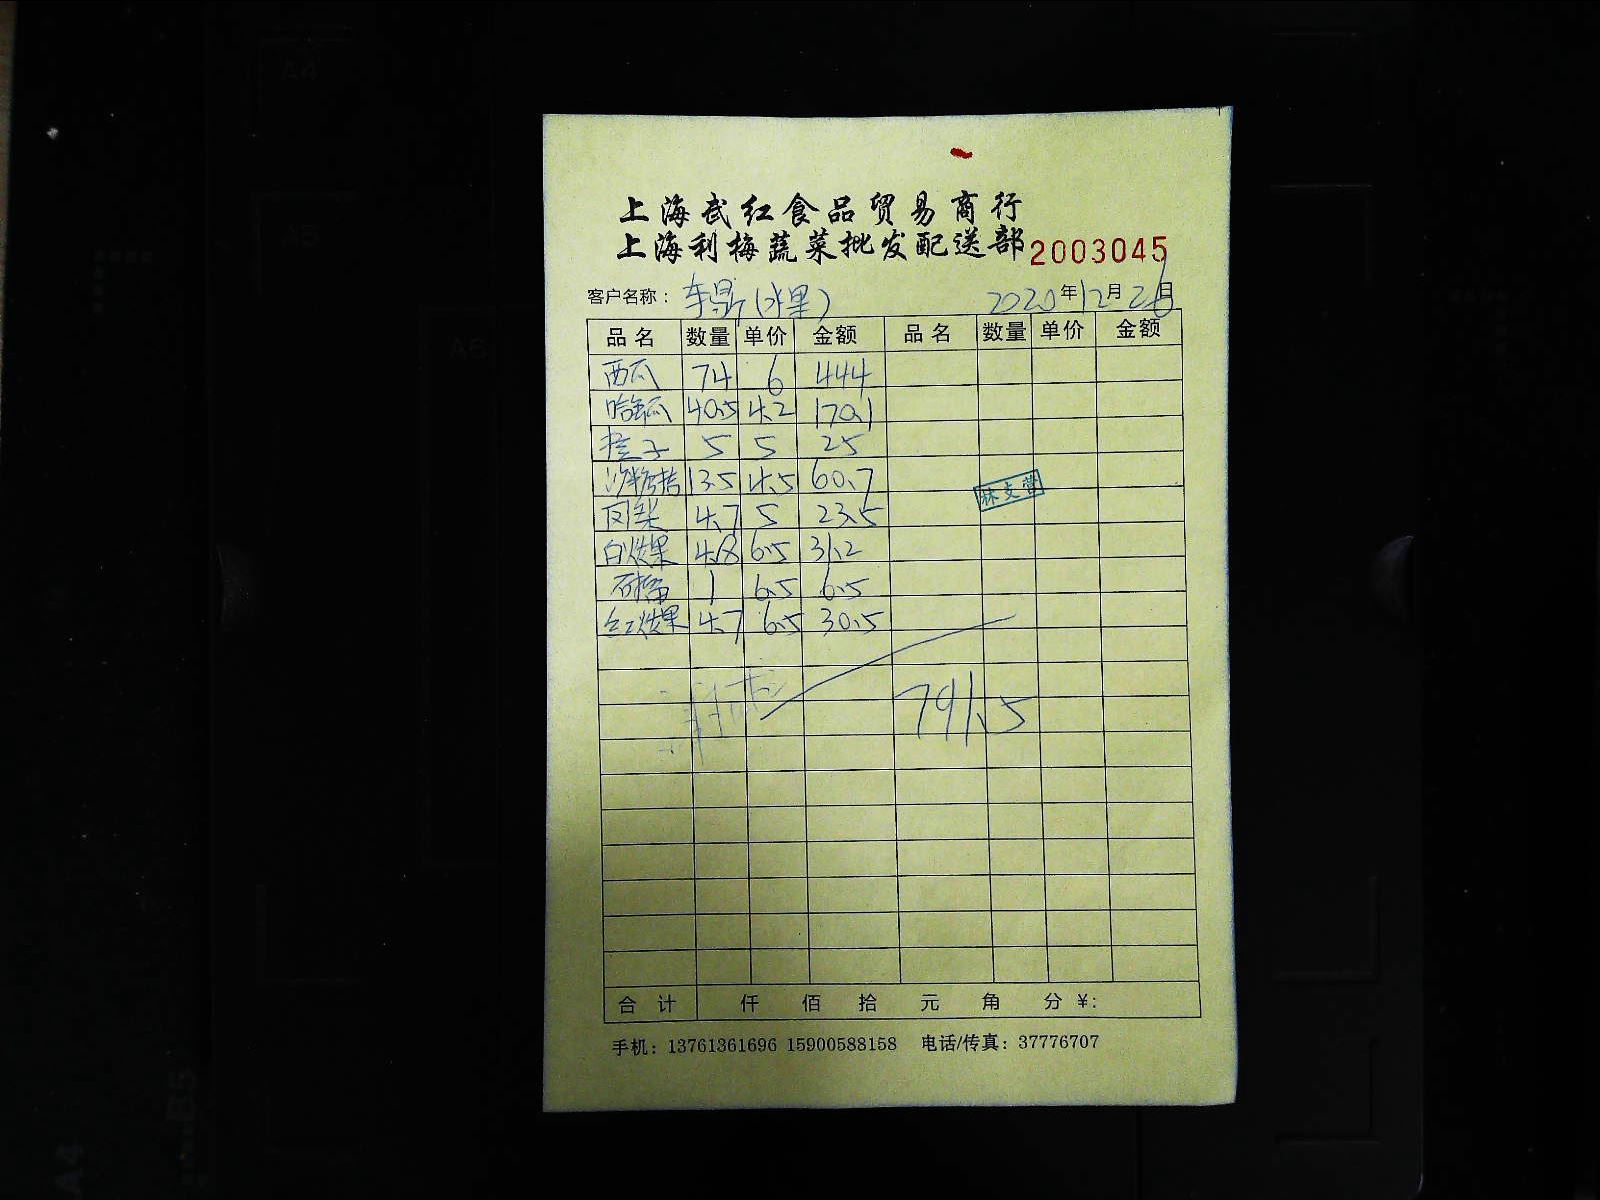 上海武红食品贸易商行
上海利梅蔬菜批发配送部 2003045
客户名称： 东昂(水果) 2020年12月26日
品名 数量 单价 金额 品名 数量 单价 金额
西瓜 74 6 444
哈密瓜 40.5 4.2 170.1
橙子 5 5 25
沙糖桔 13.5 4.5 60.7
林支营
凤梨 4.7 5 23.5
白火龙果 4.8 6.5 31.2
石榴 1 6.5 6.5
红火龙果 4.7 6.5 30.5
791.5
合计 仟 佰 拾 元 角 分 ¥:
手机：13761361696 15900588158 电话/传真：37776707
A4
A5
A6
A4
B5